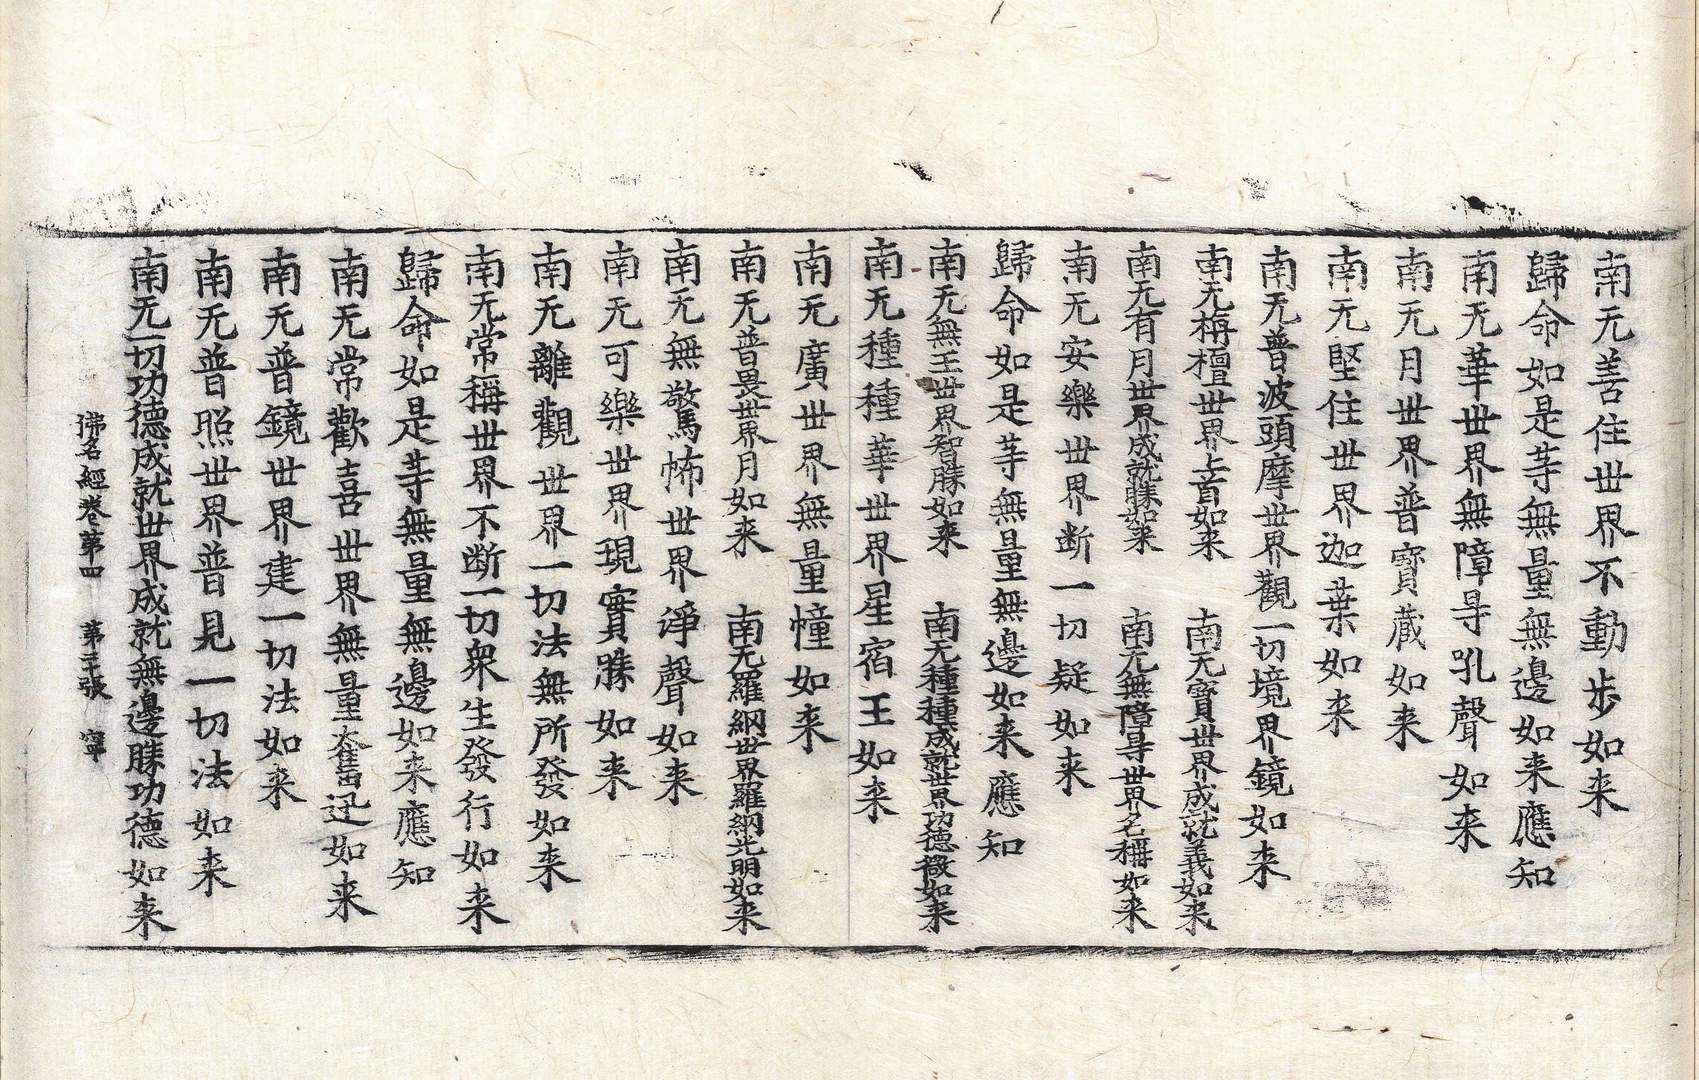 南无善住世界不動步如来
歸命如是等無量無邊如来應知
南无華世界無障㝵吼聲如来
南无月世界普寶藏如来
南无堅住世界迦葉如来
南无普波頭摩世界觀一切境界鏡如来
南无栴檀世界上首如来　南无寶世界成就義如来
南无有月世界成就勝如来　南无無障㝵世界名稱如来
南无安樂世界断一切疑如来
歸命如是等無量無邊如来應知
南无無王世界智勝如来　南无種種成就世界功德微如来
南无種種華世界星宿王如来
南无廣世界無量幢如来
南无普畏世界月如来　南无羅網世界羅網光明如来
南无無驚怖世界淨聲如来
南无可樂世界現實勝如来
南无離觀世界一切法無所發如来
南无常稱世界不断一切衆生發行如来
歸命如是等無量無邊如来應知
南无常歡喜世界無量奮迅如来
南无普鏡世界建一切法如来
南无普照世界普見一切法如来
南无一切功德成就世界成就無邊勝功德如来
佛名經卷苐四　苐三張　寧